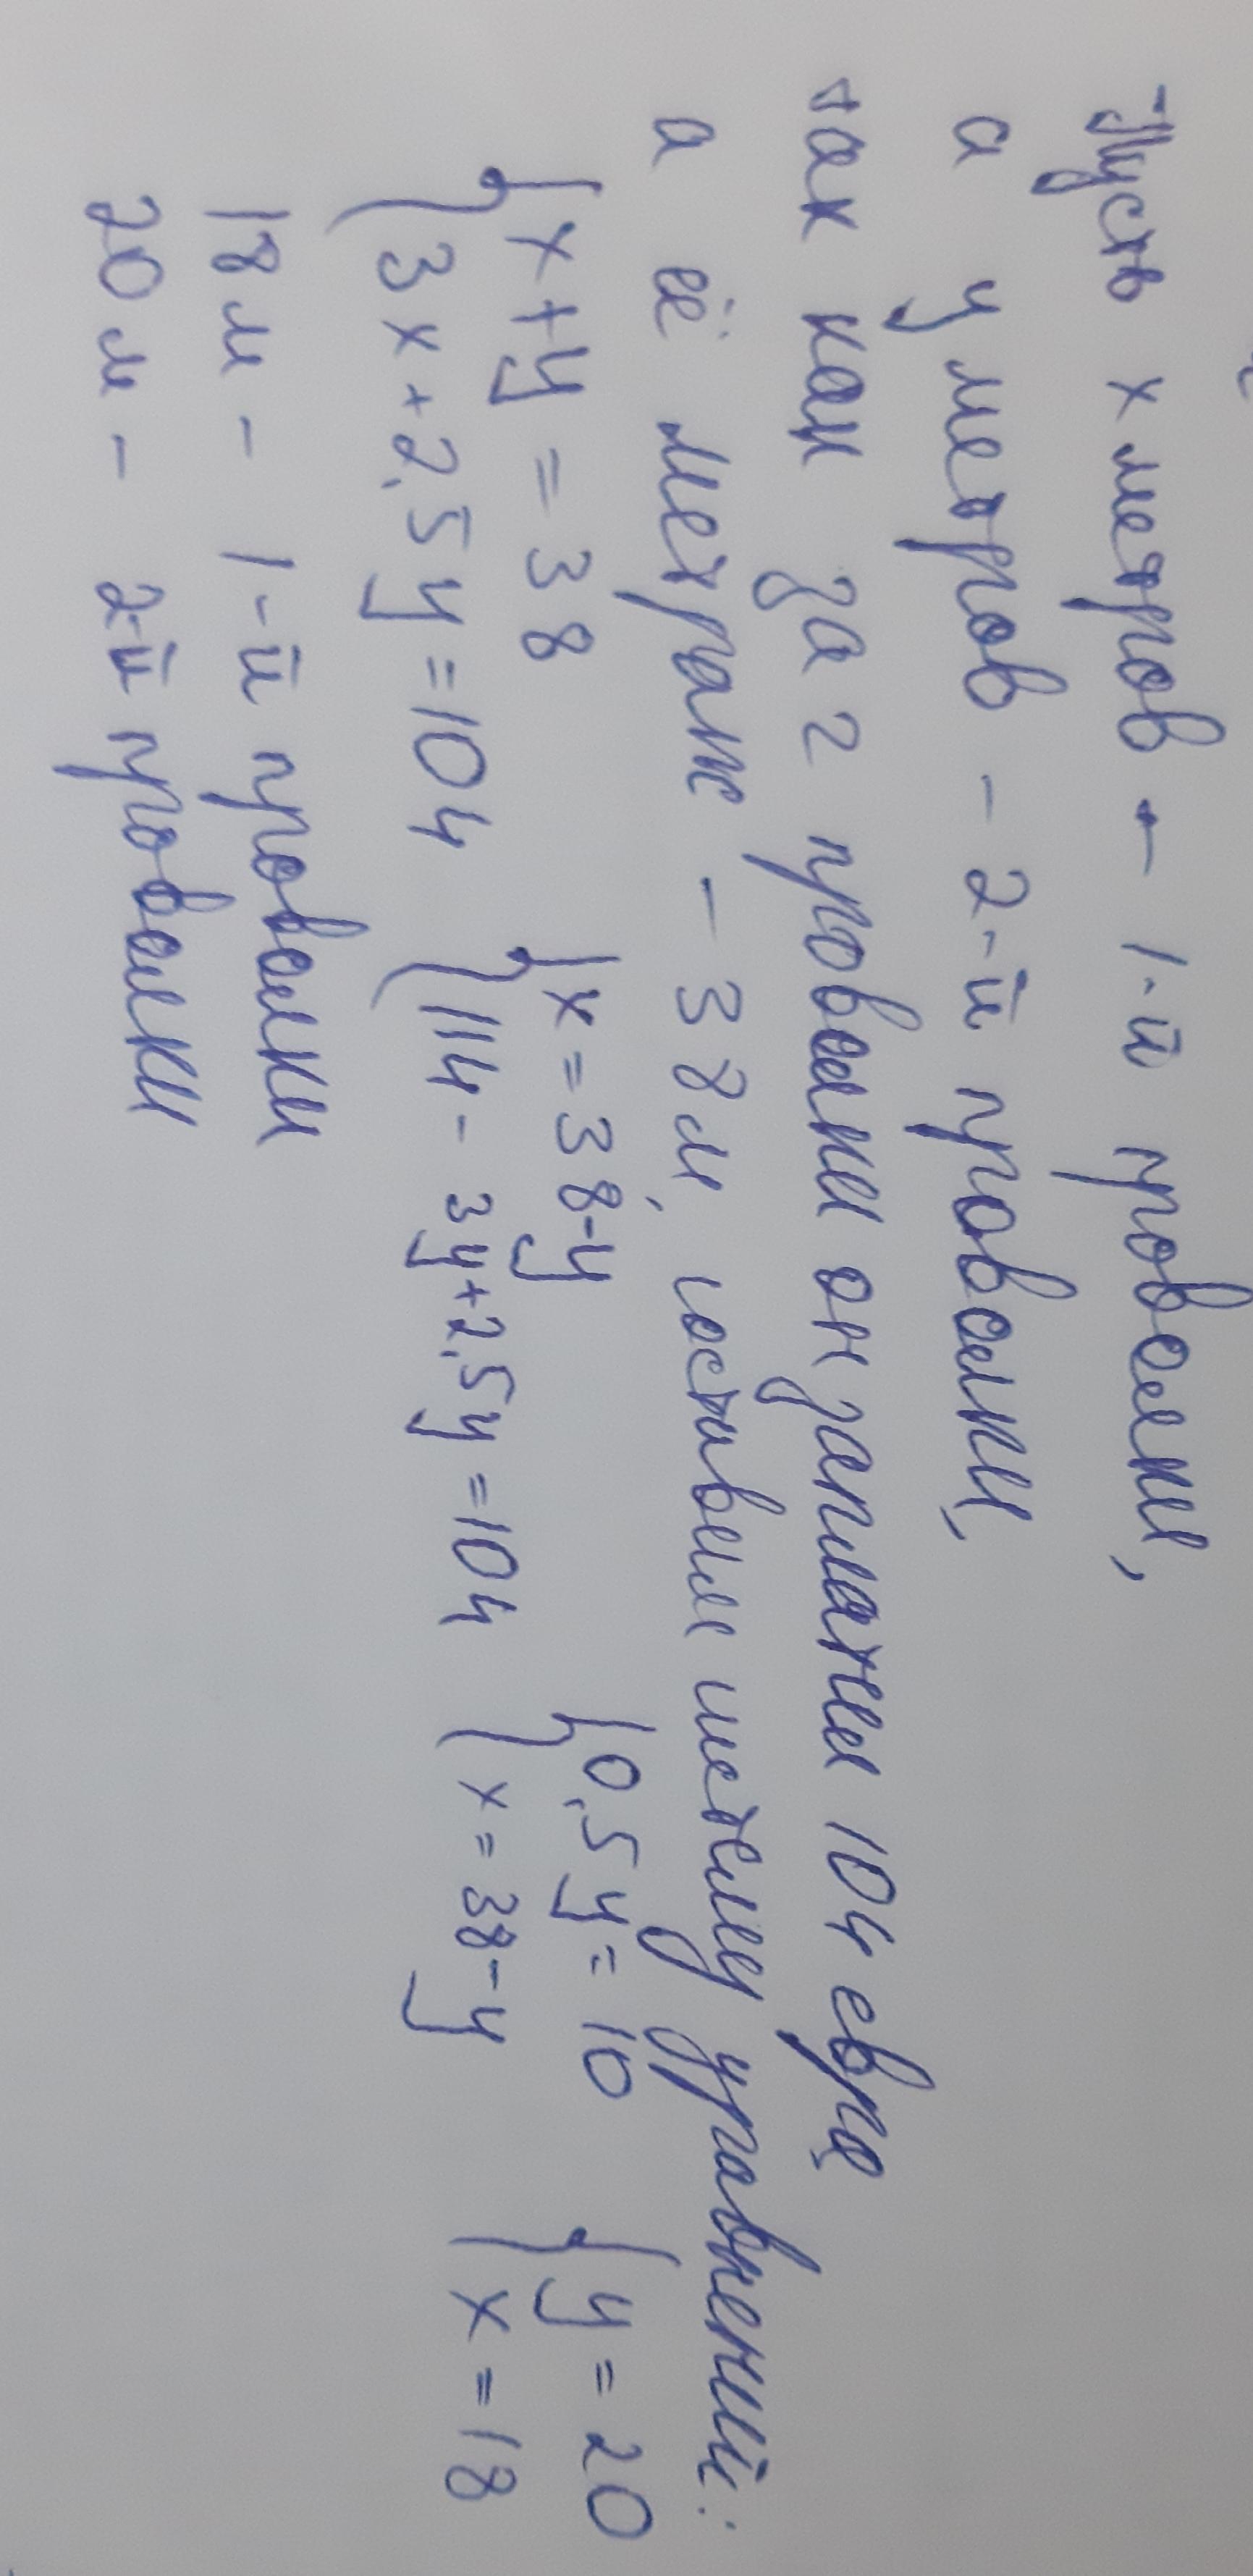 Пусть x метров - 1-й проволки,
а y метров - 2-й проволки,
так как за 2 проволки он заплатил 104 евро
а её метраж - 38м, составим систему уравнений:
{x+y=38 {x=38-y {0,5y=10 {y=20
{3x+2,5y=104 {114-3y+2,5y=104 {x=38-y {x=18
18м - 1-й проволки
20м - 2-й проволки